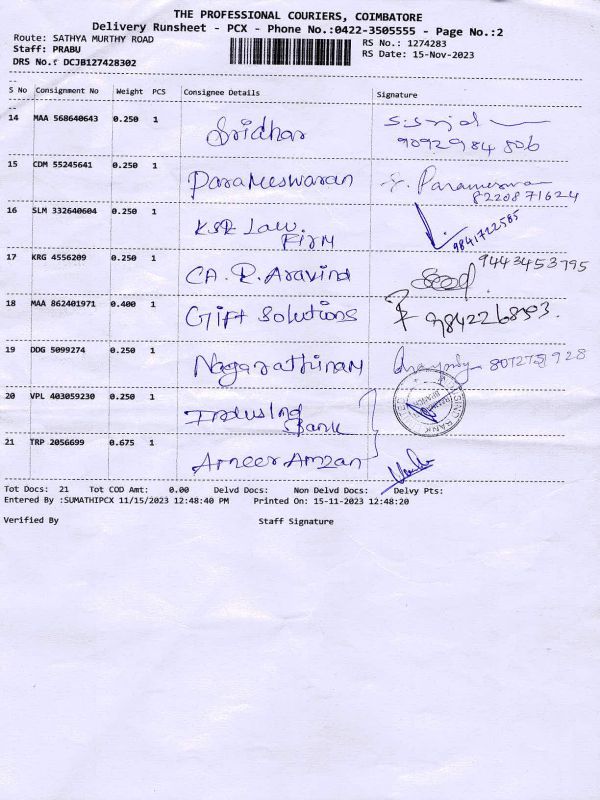 THE PROFESSIONAL COURIERS, COIMBATORE
Delivery Runsheet - PCX - Phone No.:0422-3505555 - Page No.:2
Route: SATHYA MURTHY ROAD
RS No.: 1274283
Staff: PRABU
RS Date: 15-Nov-2023
DRS No.: DCJB127428302
S No Consignment No Weight PCS Consignee Details Signature
14 MAA 568640643 0.250 1 Sridhar
9092984806
15 CDM 55245641 0.250 1 Parameswaran
8220871624
16 SLM 332640604 0.250 1 KSR Law Firm
9841722585
17 KRG 4556209 0.250 1 CA. R. Aravind 9443453795
18 MAA 862401971 0.400 1 Gift Solutions
19 DDG 5099274 0.250 1 Nagarathinam
20 VPL 403059230 0.250 1 IndusInd Bank
21 TRP 2056699 0.675 1 Ameer Amzan
Tot Docs: 21 Tot COD Amt: 0.00 Delvd Docs: Non Delvd Docs: Delvy Pts:
Entered By :SUMATHIPCX 11/15/2023 12:48:40 PM Printed On: 15-11-2023 12:48:20
Verified By Staff Signature